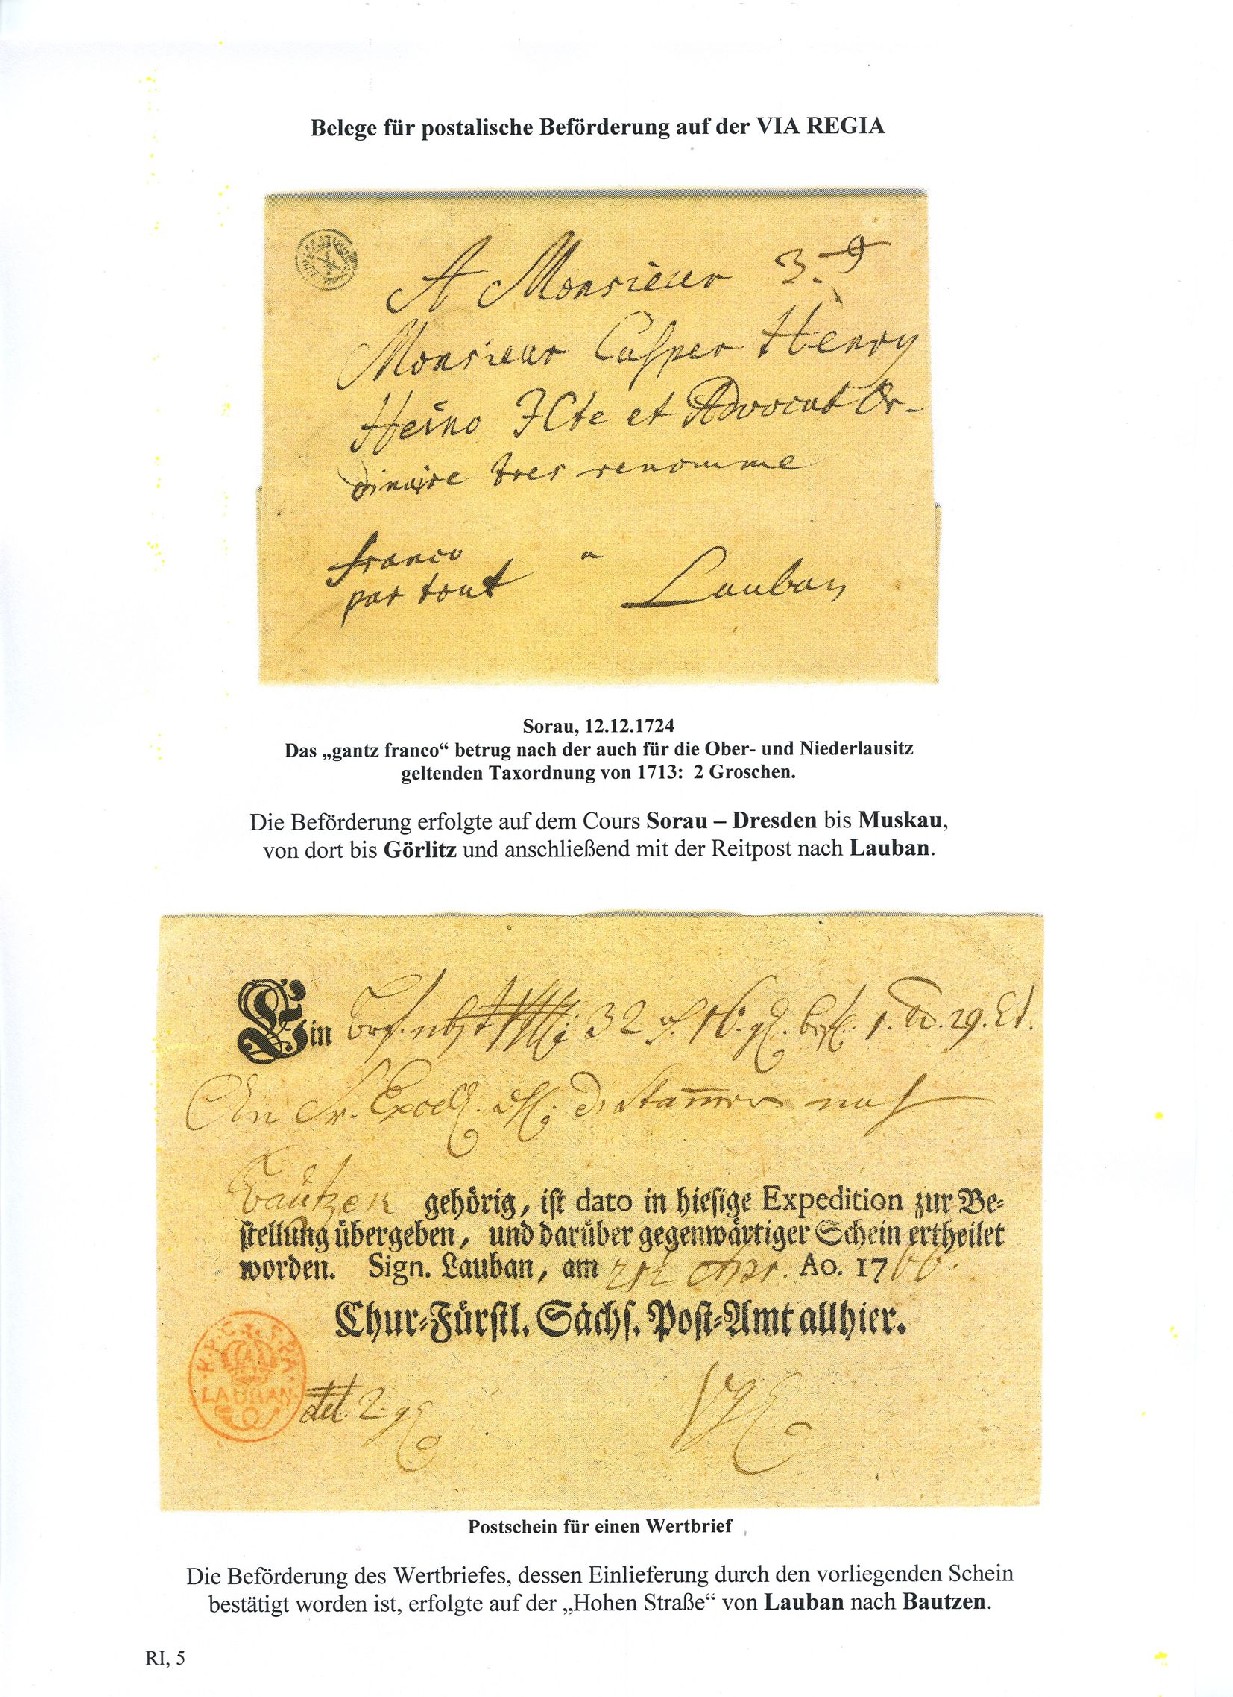 Belege für postalische Beförderung auf der VIA REGIA
A Monsieur 3. g
Monsieur Casper Henry
Heino JCte et Advocat Or-
dinaire tres renomme
franco a
par tout Lauban
Sorau, 12.12.1724
Das „gantz franco“ betrug nach der auch für die Ober- und Niederlausitz
geltenden Taxordnung von 1713: 2 Groschen.
Die Beförderung erfolgte auf dem Cours Sorau – Dresden bis Muskau,
von dort bis Görlitz und anschließend mit der Reitpost nach Lauban.
Ein 32
An Sr. Excell.
Bautzen gehörig, ist dato in hiesige Expedition zur Be-
stellung übergeben, und darüber gegenwärtiger Schein ertheilet
worden. Sign. Lauban, am Ao. 1766.
Chur-Fürstl. Sächs. Post-Amt allhier.
LAUBAN
2 g
Postschein für einen Wertbrief
Die Beförderung des Wertbriefes, dessen Einlieferung durch den vorliegenden Schein
bestätigt worden ist, erfolgte auf der „Hohen Straße“ von Lauban nach Bautzen.
RI, 5